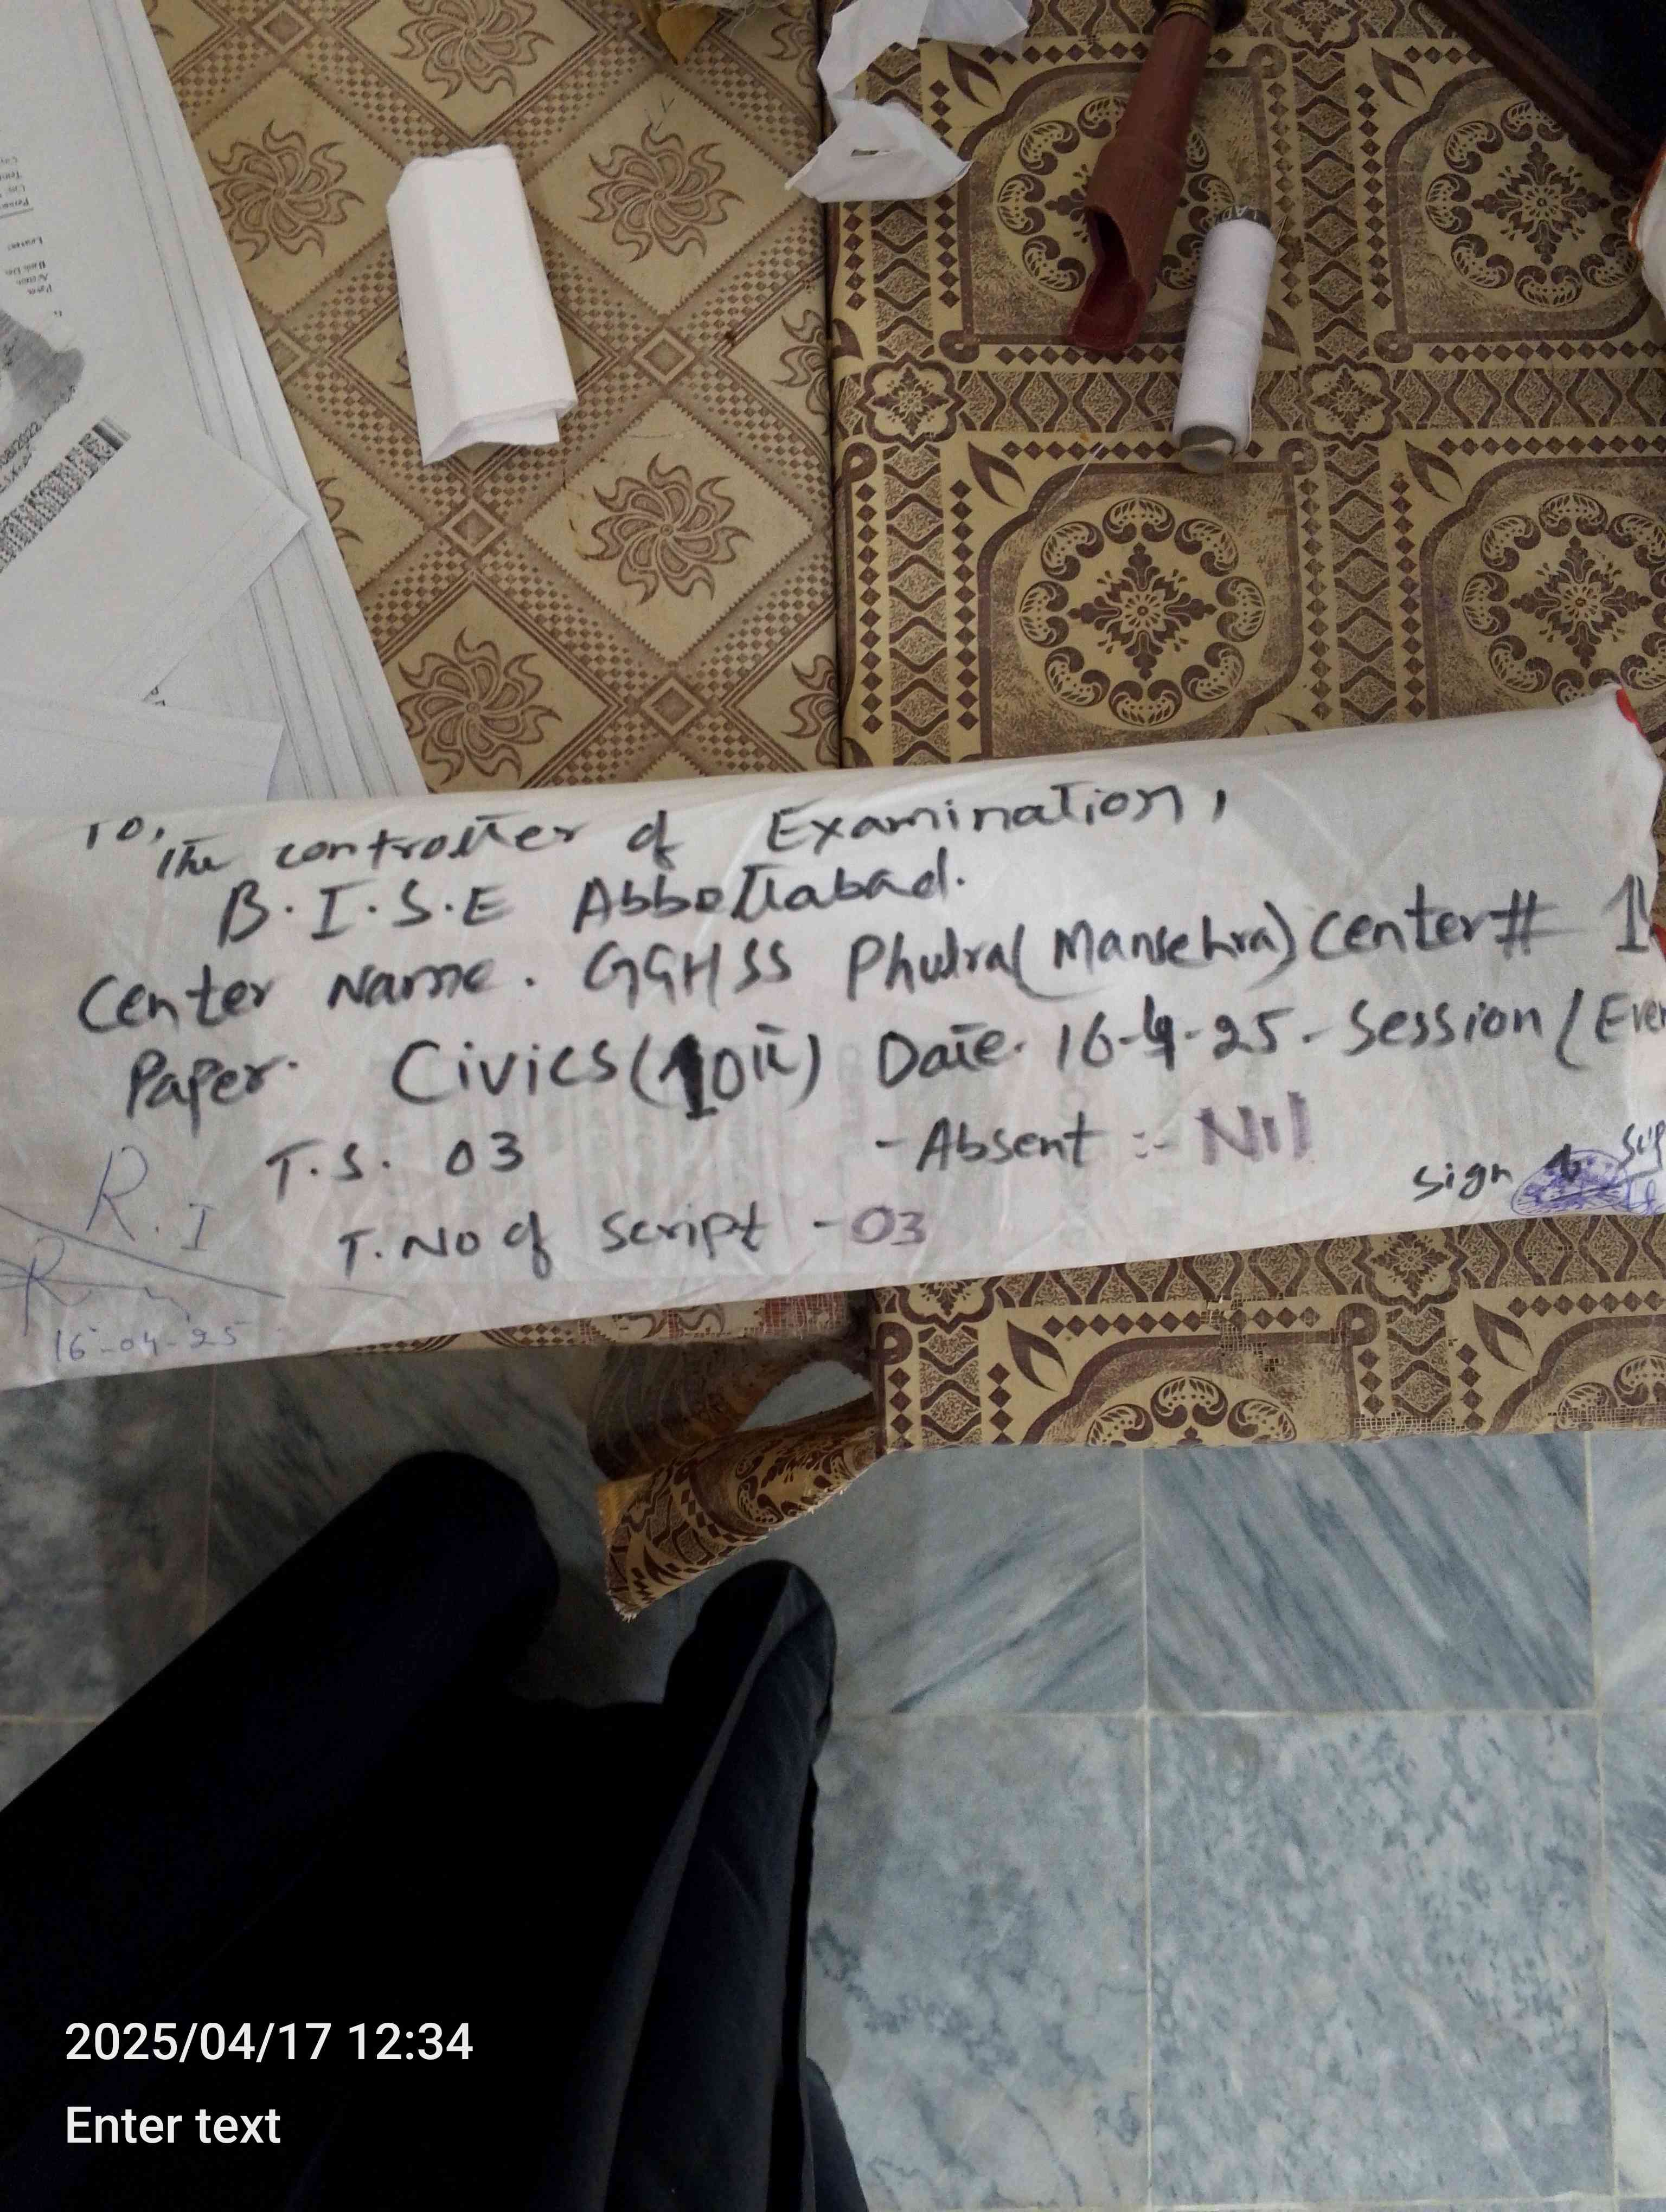 To,
The controller of Examination,
B.I.S.E Abbottabad.
Center Name. GGHSS Phulra (Mansehra) Center#
Paper. Civics (10th) Date. 16-4-25 - Session (Even
T.S. 03 - Absent :- Nil
Sign &
T. No of script - 03
R.I
16-04-25
2025/04/17 12:34
Enter text